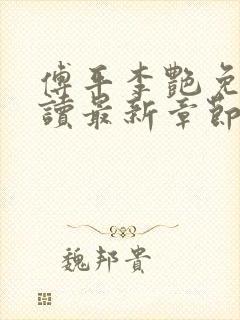 傅平李艷免
讀最新章節
魏邦貴